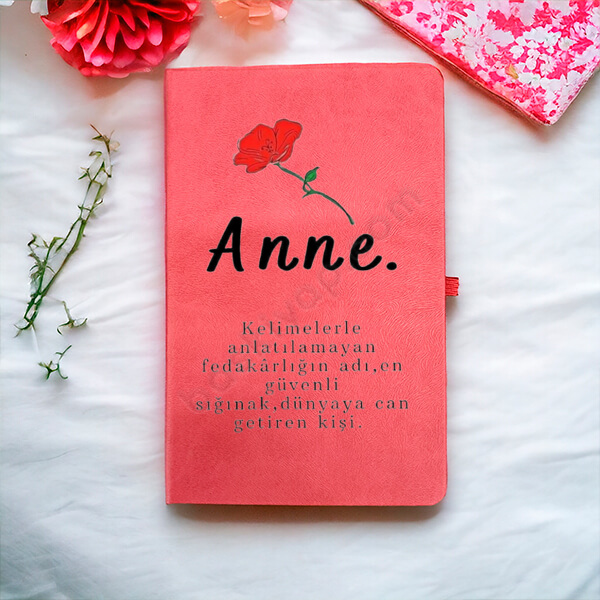 Anne.
Kelimelerle
anlatılamayan
fedakârlığın adı,en
güvenli
sığınak,dünyaya can
getiren kişi.